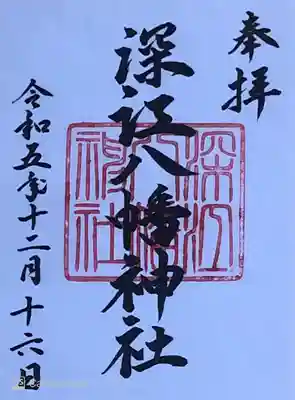 奉拝
深江八幡神社
深江八幡神社
令和五年十二月十六日